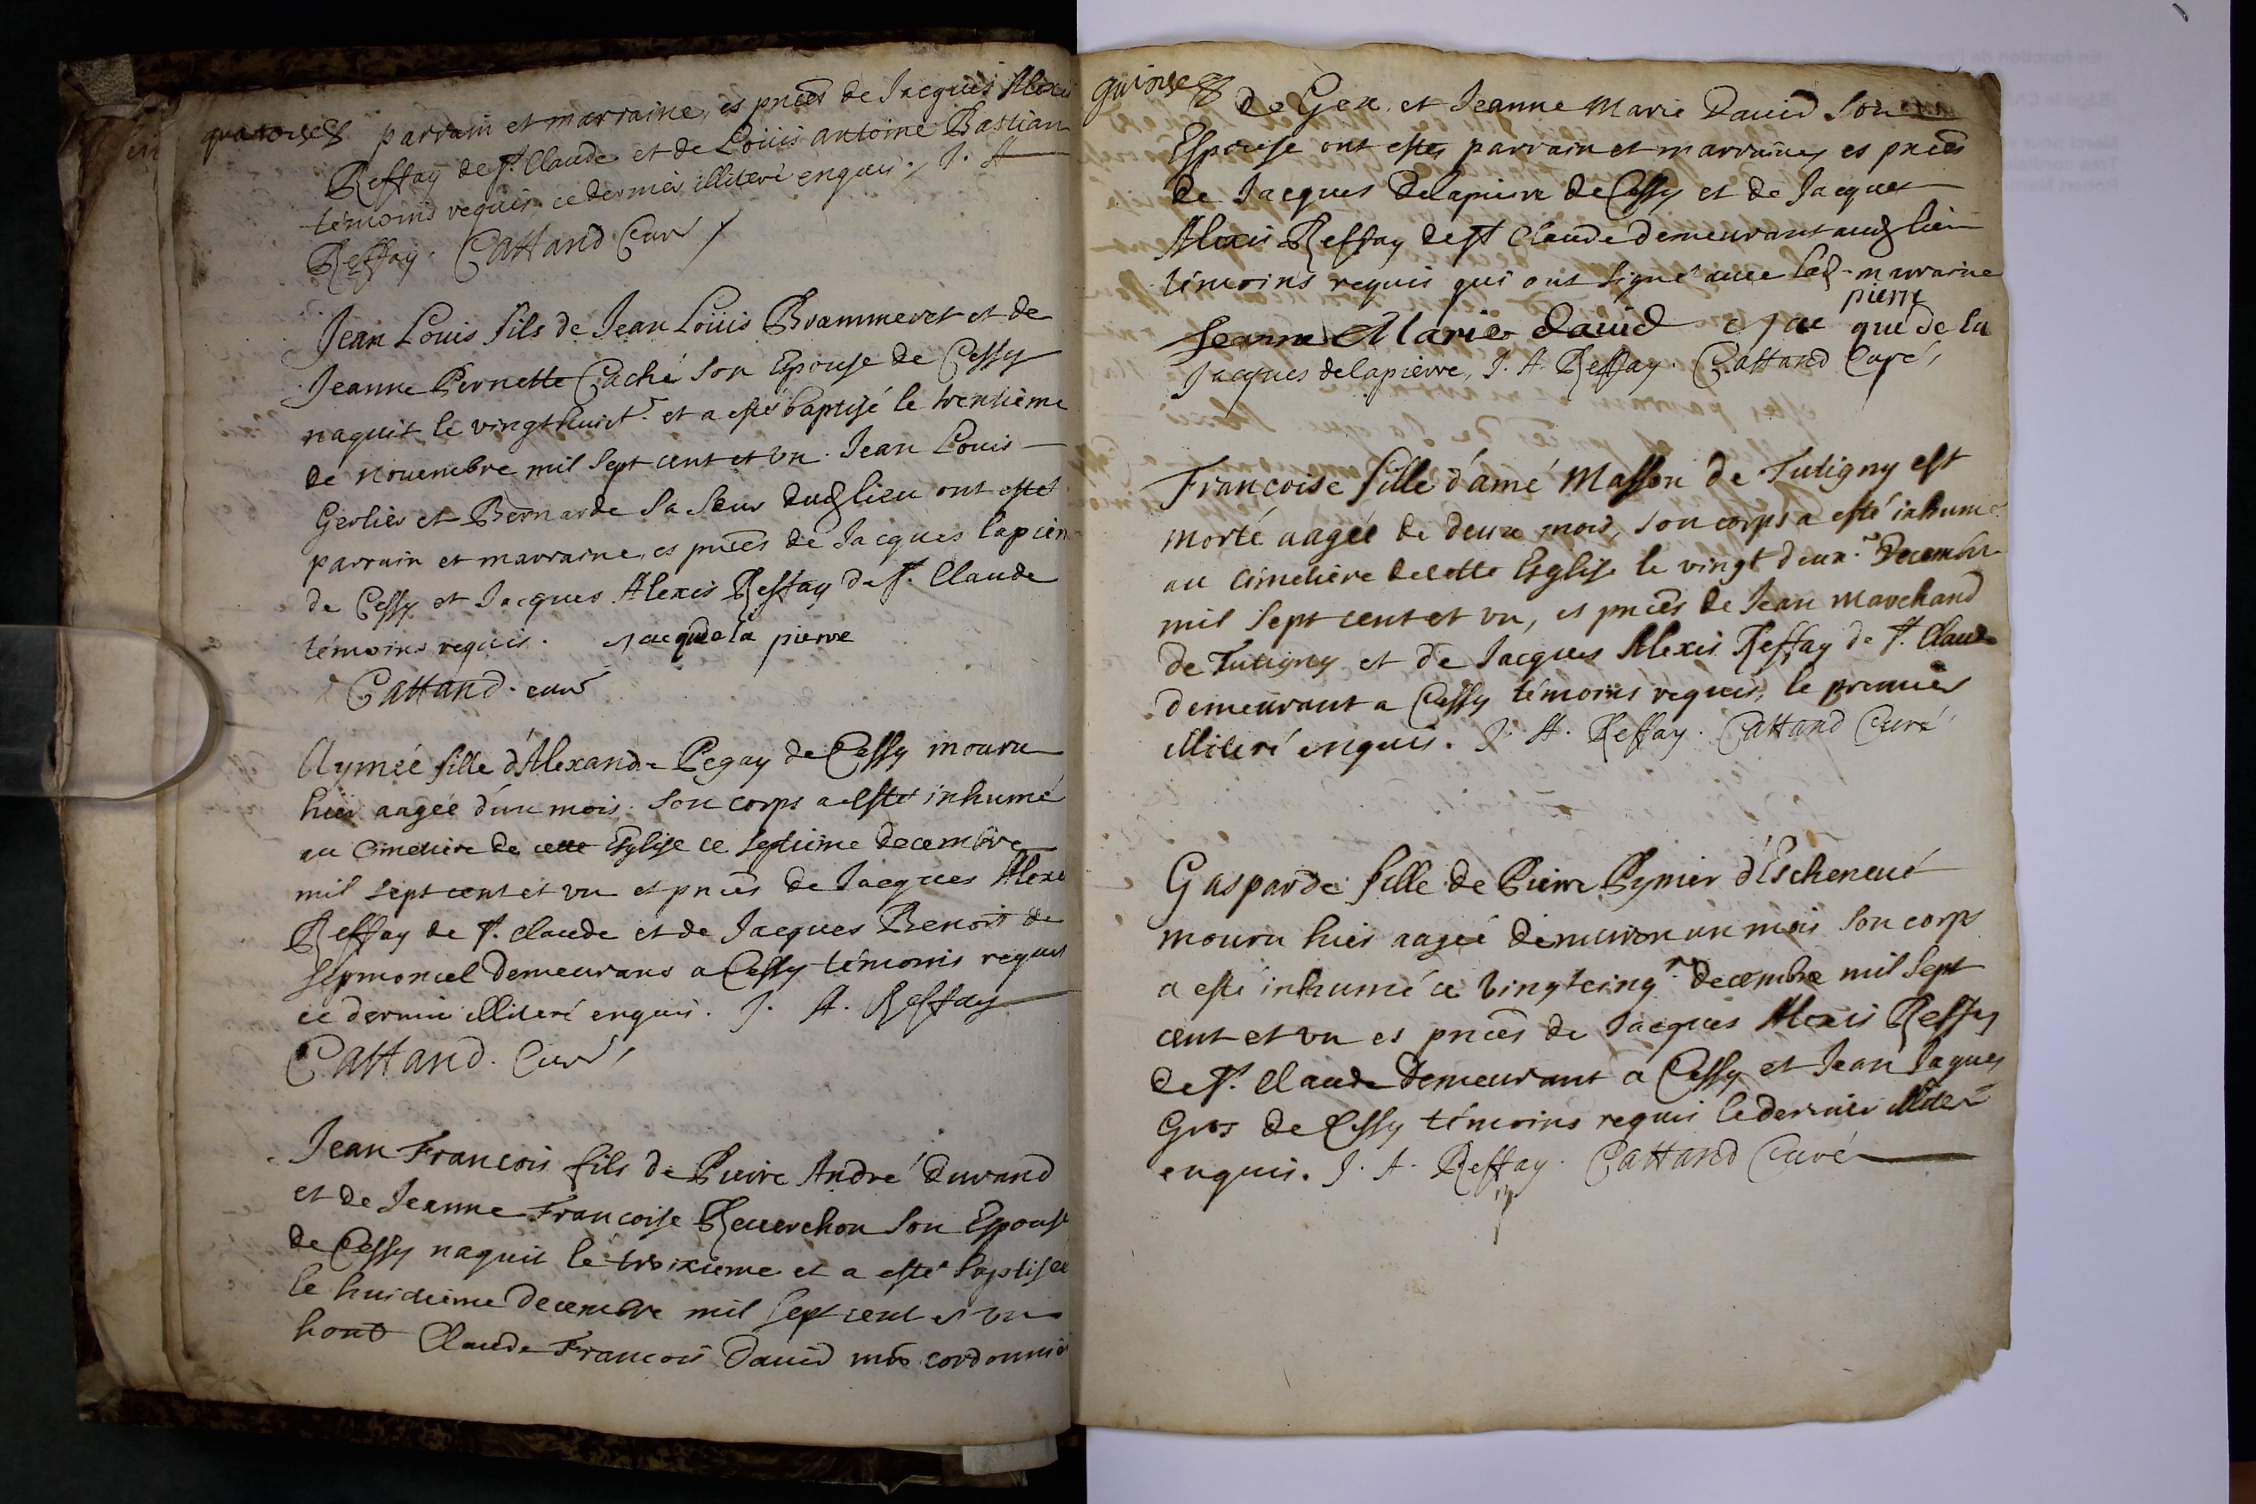 quatorze parrain et marraine, es pnces de Jacques Alexis
Reffay de St. Claude et de Loüis antoine Bastian
témoins requis, ce dernier illiteré enquis. J. A
Reffay. Cattand Curé
Jean Louis fils de Jean Loüis Brammeret et de
Jeanne Pernette Caché son Epouse de Cessy
naquit le vingt huict.e et a esté baptisé le trentième
de nouembre mil sept cent et vn. Jean Louis
Gerlier et Bernarde sa seur dud lieu ont esté
parrain et marraine, es pnces de Jacques lapierre
de Cessy et Jacques Alexis Reffay de St. Claude
témoins requis. Jacque de la pierre
Cattand. curé
Aymée fille d'Alexandre Pegay de Cessy mouru
hier aagée d'un mois. Son corps a esté inhumé
au Cimetiere de cette Eglise ce septième decembre
mil sept cent et vn et pnces de Jacques Alexis
Reffay de St. Claude et de Jacques Benoit de
Septmoncel demeurans a Cessy témoins requis
ce dernier illiteré enquis. J. A. Reffay
Cattand. Curé
Jean Francois fils de Pierre André Durand
et de Jeanne Francoise Reuerchon son Epouse
de Cessy naquit le troixieme et a esté baptisé
le huictieme decembre mil sept cent et vn
hont Claude Francois Dauid mre cordonnier
quinze de Gex et Jeanne Marie Dauid son
Espouse ont estes parrain et marraine, es pnces
de Jacques Delapierre de Cessy et de Jacques
Alexis Reffay de St Claude demeurant aud lieu
témoins requis qui ont signé auec lad. marraine
Jeanne Marie dauid Jac que de la pierre
Jacques delapierre, J. A. Reffay. Cattand Curé,
Francoise fille d'amé Masson de Tutigny est
morte aagée de deux mois, son corps a esté inhumé
au Cimetière de cette Eglise le vingt deux.e Decembre
mil sept cent et vn, es pnces de Jean Marchand
de Tutigny et de Jacques Alexis Reffay de St. Claude
demeurant a Cessy témoins requis, le premier
illiteré enquis. J. A. Reffay. Cattand Curé
Gasparde fille de Pierre Pymier d'Escheneué
mouru hier aagée denuiron un mois Son corps
a esté inhumé ce vingtcinq.e decembre mil sept
cent et vn es pnces de Jacques Alexis Reffay
de St. Claude demeurant a Cessy et Jean Jaques
Gros de Cessy témoins requis le dernier illiteré
enquis. J. A. Reffay. Cattand Curé